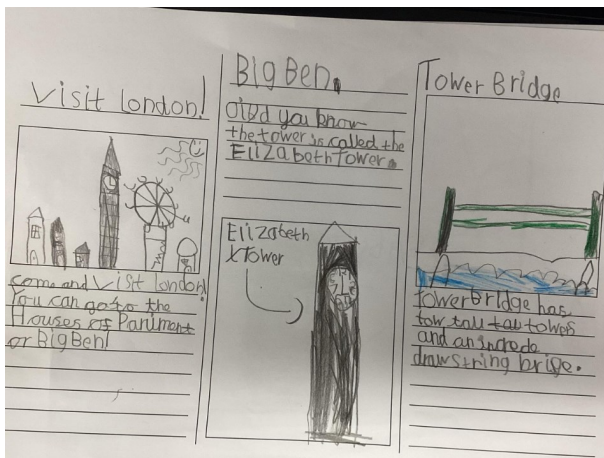 Visit London!
come and visit london!
You can go to the
Houses of Parliment
or Big Ben!
Big Ben.
Did you know
the tower is called the
Elizabeth Tower.
Elizabeth
Tower
Tower Bridge
tower bridge has
tow tall tau towes
and an increde
drawstring brige.